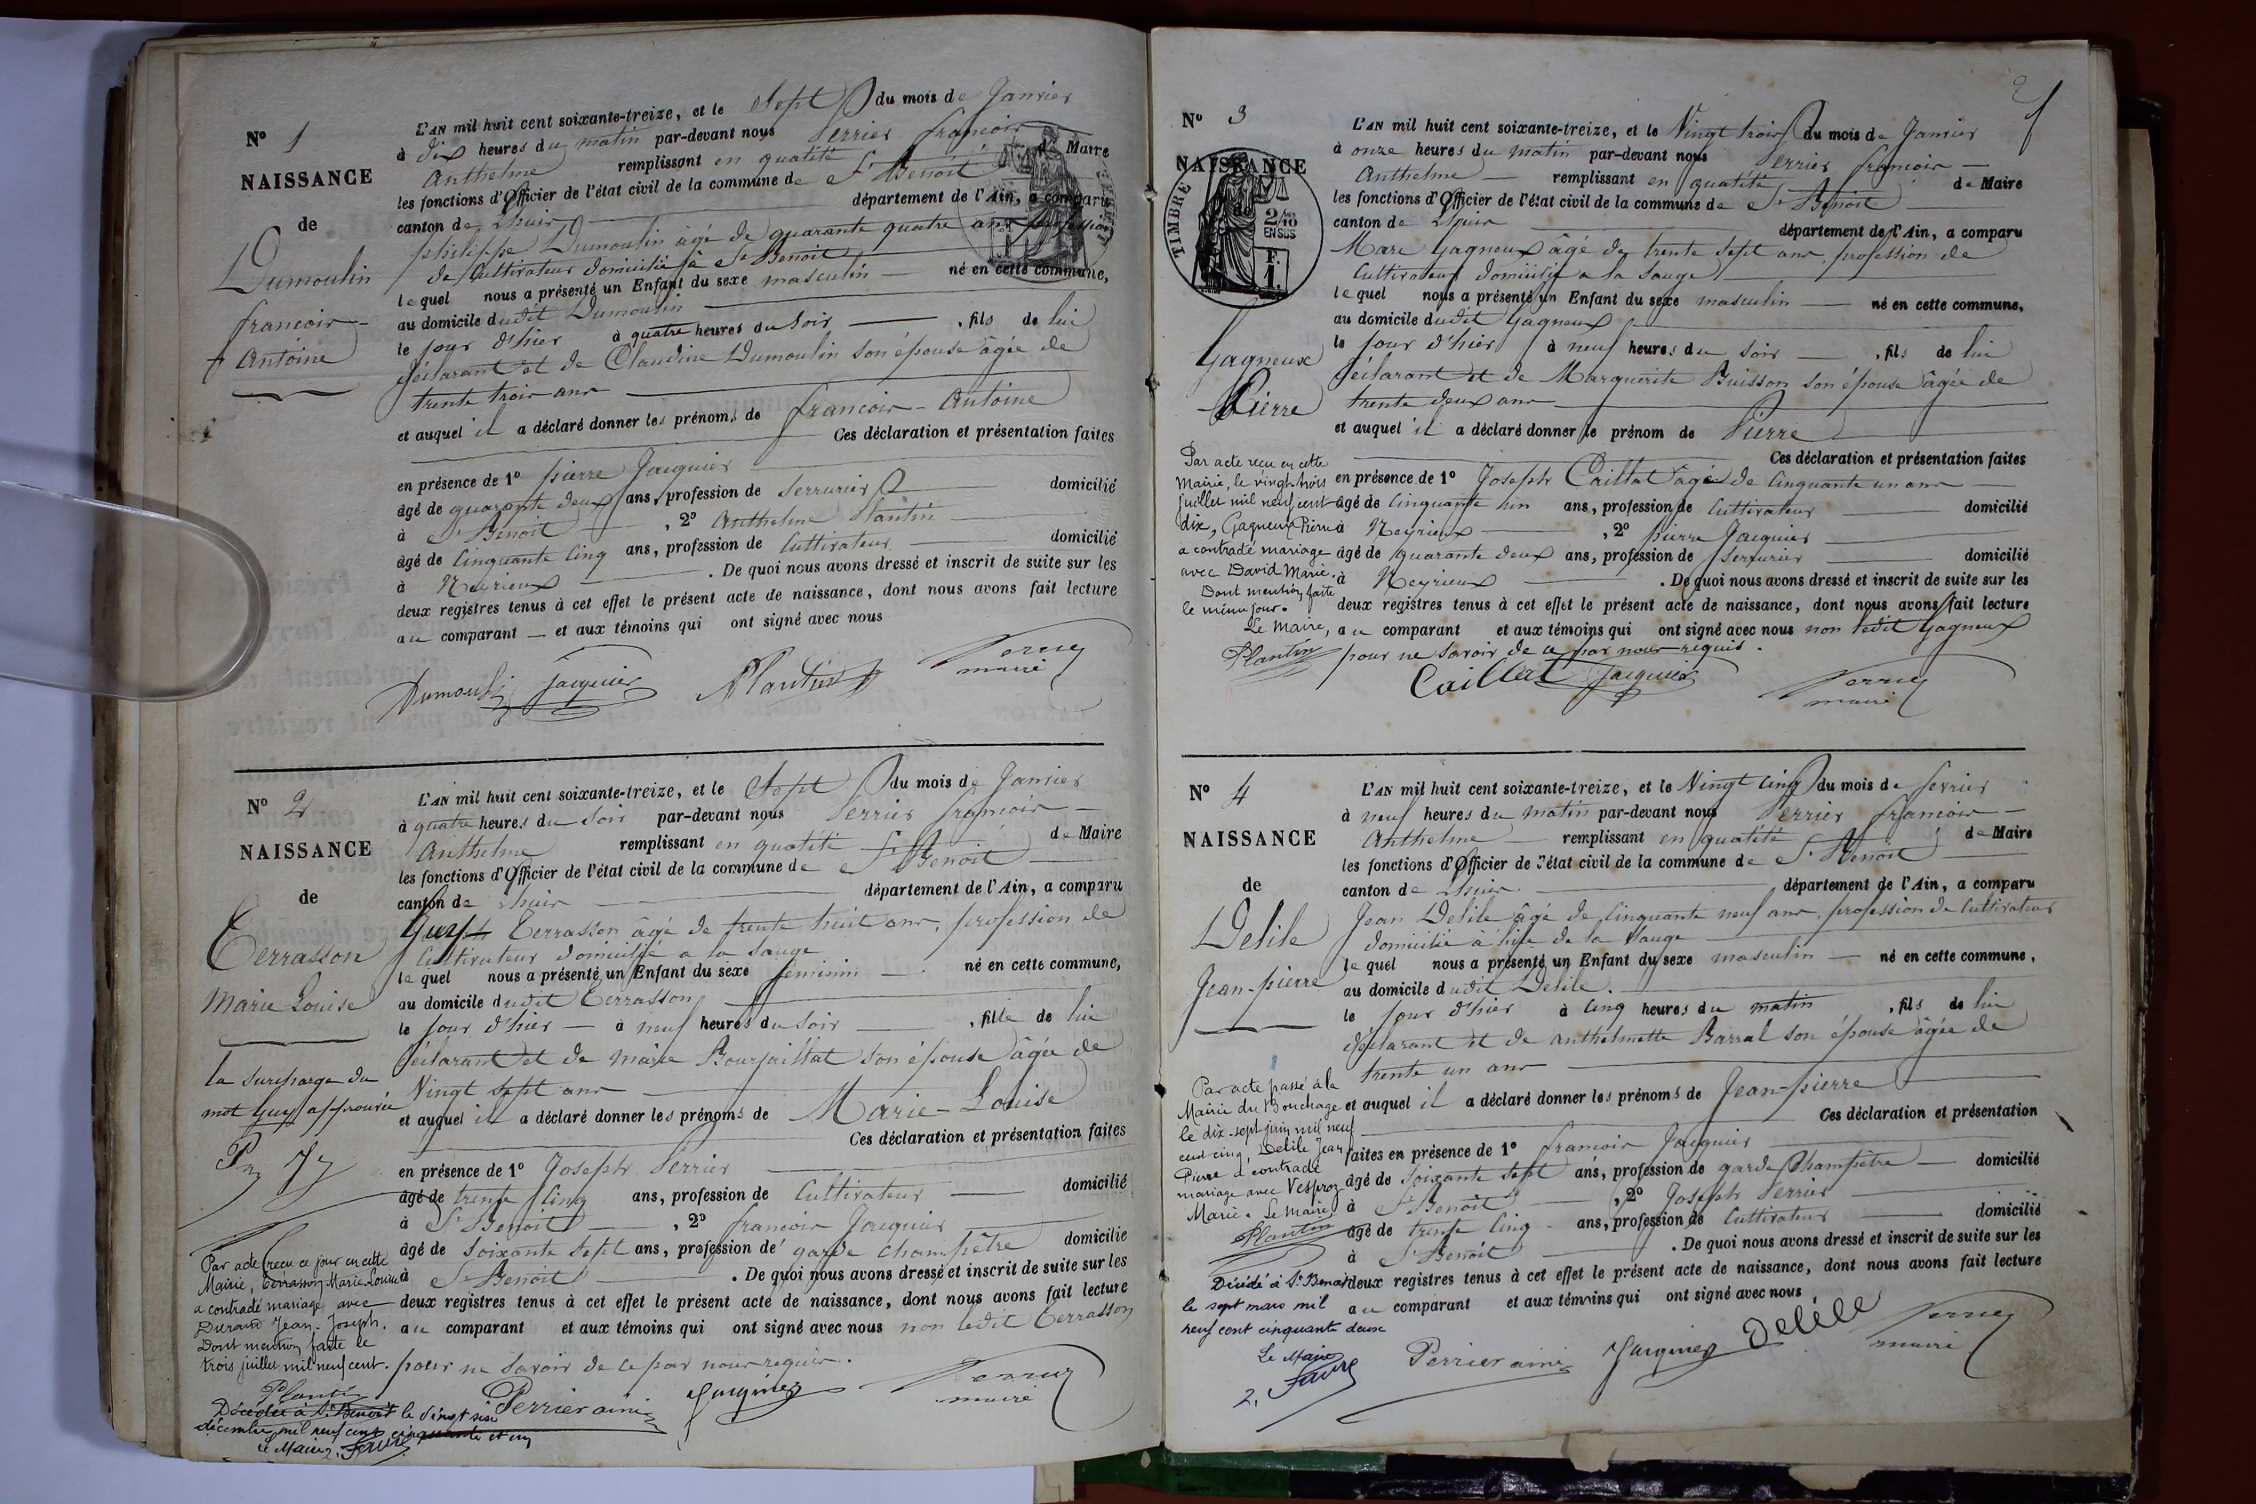 N° 1
NAISSANCE
de
Dumoulin
francois-
Antoine
L'AN mil huit cent soixante-treize, et le Sept du mois de Janvier
à dix heures du matin par-devant nous Perrier francois
Anthelme remplissant en qualité de Maire
les fonctions d'Officier de l'état civil de la commune de St Benoit
canton de Lhuis département de l'Ain, a comparu
philippe Dumoulin âgé de quarante quatre ans profession
de Cultivateur domicilié à St Benoit
lequel nous a présenté un Enfant du sexe masculin né en cette commune,
au domicile dudit Dumoulin
le jour d'hier à quatre heures du soir, fils de lui
déclarant et de Claudine Dumoulin son épouse âgée de
trente trois ans
et auquel il a déclaré donner les prénoms de francois-Antoine
Ces déclaration et présentation faites
en présence de 1° pierre Jacquier
âgé de quarante deux ans, profession de Serrurier domicilié
à St Benoit, 2° Anthelme Plantin
âgé de Cinquante Cinq ans, profession de Cultivateur domicilié
à Neyrieux. De quoi nous avons dressé et inscrit de suite sur les
deux registres tenus à cet effet le présent acte de naissance, dont nous avons fait lecture
au comparant — et aux témoins qui ont signé avec nous
Dumoulin Jacquier Plantin Perrier
maire
N° 2
NAISSANCE
de
Terrasson
Marie Louise
la surcharge du
mot Guys approuvée
L'AN mil huit cent soixante-treize, et le Sept du mois de Janvier
à quatre heures du soir par-devant nous Perrier francois
Anthelme remplissant en qualité de Maire
les fonctions d'Officier de l'état civil de la commune de St Benoit
canton de Lhuis département de l'Ain, a comparu
Terrasson âgé de trente huit ans, profession de
Cultivateur domicilié a la Sauge
lequel nous a présenté un Enfant du sexe feminin né en cette commune,
au domicile dudit Terrasson
le jour d'hier — à neuf heures du soir, fille de lui
déclarant et de marie Bourjaillat son épouse âgée de
Vingt sept ans
et auquel il a déclaré donner les prénoms de Marie-Louise
Ces déclaration et présentation faites
en présence de 1° Joseph Perrier
âgé de trente Cinq ans, profession de Cultivateur domicilié
à St Benoit, 2° francois Jacquier
âgé de soixante sept ans, profession de garde champêtre domicilié
à St Benoit. De quoi nous avons dressé et inscrit de suite sur les
deux registres tenus à cet effet le présent acte de naissance, dont nous avons fait lecture
au comparant et aux témoins qui ont signé avec nous non ledit Terrasson
pour ne savoir de ce par nous requis.
Perrier ainé Jacquier Perrier
maire
Par acte recu ce jour en cette
Mairie, Terrasson Marie-Louise
a contracté mariage avec
Durand Jean-Joseph.
Dont mention faite le
trois juillet mil neuf cent.
Plantin
Décédée à St Benoit le vingt six
décembre mil neuf cent cinquante et un
Le Maire, Favre
2
N° 3
NAISSANCE
de
TIMBRE
2/10
EN SUS
F.
1.
Gagneux
Pierre
L'AN mil huit cent soixante-treize, et le Vingt trois du mois de Janvier
à onze heures du matin par-devant nous Perrier francois —
Anthelme — remplissant en qualité de Maire
les fonctions d'Officier de l'état civil de la commune de St Benoit
canton de Lhuis département de l'Ain, a comparu
Marc Gagneux âgé de trente sept ans, profession de
Cultivateur domicilié a la Sauge
lequel nous a présenté un Enfant du sexe masculin — né en cette commune,
au domicile dudit Gagneux
le jour d'hier à neuf heures du soir —, fils de lui
déclarant et de Marguerite Buisson son épouse âgée de
trente deux ans
et auquel il a déclaré donner le prénom de Pierre
Ces déclaration et présentation faites
en présence de 1° Joseph Caillat âgé de Cinquante un ans
âgé de Cinquante un ans, profession de Cultivateur domicilié
à Neyrieux, 2° pierre Jacquier
âgé de quarante deux ans, profession de Serrurier domicilié
à Neyrieux. De quoi nous avons dressé et inscrit de suite sur les
deux registres tenus à cet effet le présent acte de naissance, dont nous avons fait lecture
au comparant et aux témoins qui ont signé avec nous non ledit Gagneux
pour ne savoir de ce par nous requis.
Caillat Jacquier Perrier
maire
Par acte recu en cette
Mairie, le vingt-trois
juillet mil neuf cent
dix, Gagneux Pierre
a contracté mariage
avec David Marie.
Dont mention faite
le même jour.
Le Maire,
Plantin
N° 4
NAISSANCE
de
Delile
Jean-pierre
L'AN mil huit cent soixante-treize, et le Vingt Cinq du mois de fevrier
à neuf heures du matin par-devant nous Perrier francois
Anthelme — remplissant en qualité de Maire
les fonctions d'Officier de l'état civil de la commune de St Benoit
canton de Lhuis département de l'Ain, a comparu
Jean Delile âgé de Cinquante neuf ans, profession de Cultivateur
domicilié à
lequel nous a présenté un Enfant du sexe masculin — né en cette commune,
au domicile dudit Delile.
le jour d'hier à Cinq heures du matin, fils de lui
déclarant et de Anthelmette Barral son épouse âgée de
trente un ans
et auquel il a déclaré donner les prénoms de Jean-pierre
Ces déclaration et présentation
faites en présence de 1° francois Jacquier
âgé de soixante sept ans, profession de garde Champêtre — domicilié
à St Benoit, 2° Joseph Perrier
âgé de trente Cinq ans, profession de Cultivateur domicilié
à St Benoit. De quoi nous avons dressé et inscrit de suite sur les
deux registres tenus à cet effet le présent acte de naissance, dont nous avons fait lecture
au comparant et aux témoins qui ont signé avec nous
Perrier ainé Jacquier Delile Perrier
maire
Par acte passé à la
Mairie du Bouchage
le dix-sept juin mil neuf
cent cinq, Delile Jean
Pierre a contracté
mariage avec Vesproz
Marie. Le Maire
Plantin
Décédé à St Benoit
le sept mars mil
neuf cent cinquante deux
Le Maire
Favre